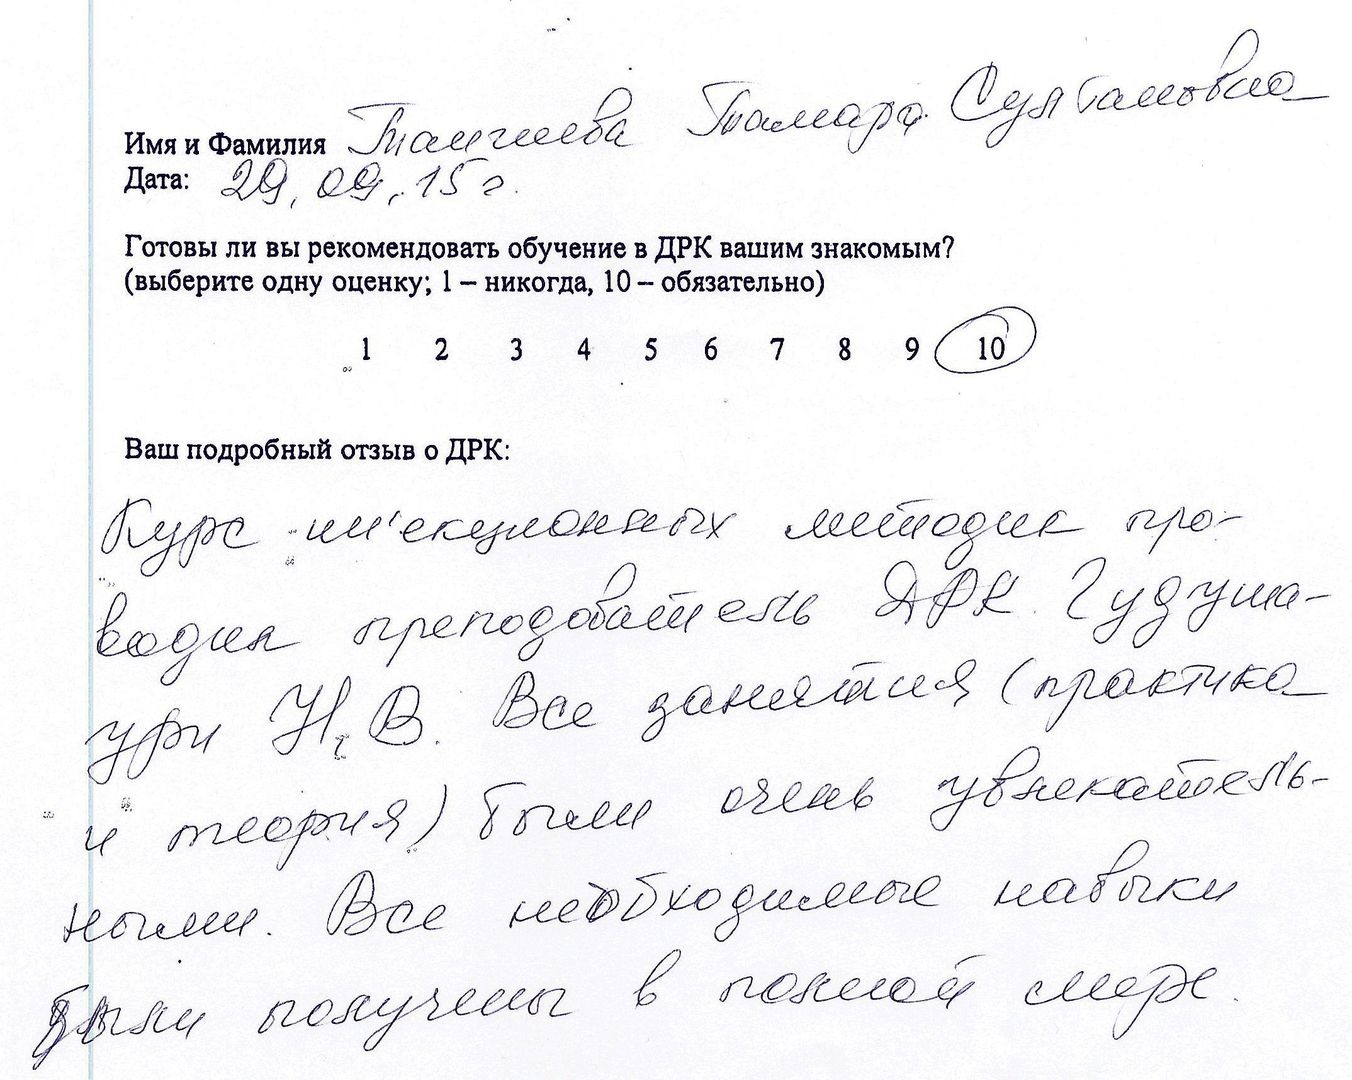 Имя и Фамилия Тамгиева Тамара Султановна
Дата: 29.09.15 г.
Готовы ли вы рекомендовать обучение в ДРК вашим знакомым?
(выберите одну оценку; 1 – никогда, 10 – обязательно)
1 2 3 4 5 6 7 8 9 10
Ваш подробный отзыв о ДРК:
Курс ин'екционных методик про-
водил преподаватель ДРК Гудуша-
ури Н.В. Все занятия (практика
и теория) были очень увлекатель-
ными. Все необходимые навыки
были получены в полной мере.